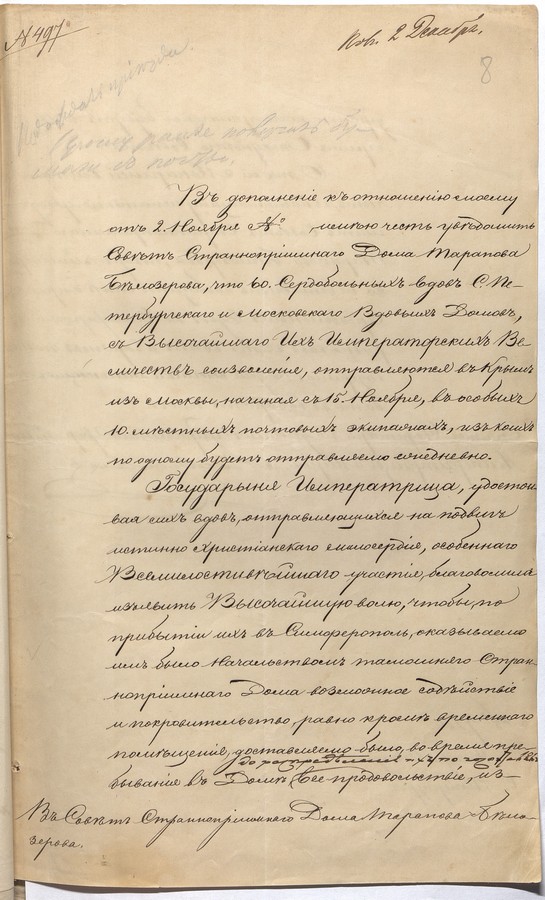 № 497
Пол. 2 Декабря.
8
Въ дополненіе къ отношенію моему
отъ 2. Ноября №       имѣю честь увѣдомить
Совѣтъ Страннопріимнаго Дома Таранова
Бѣлозерова, что 60. Сердобольныхъ вдовъ С. Пе-
тербургскаго и Московскаго Вдовьихъ Домовъ,
съ Высочайшаго Ихъ Императорскихъ Ве-
личествъ соизволенія, отправляются въ Крымъ
изъ Москвы, начиная съ 15. Ноября, въ особыхъ
10. мѣстныхъ почтовыхъ экипажахъ, изъ коихъ
по одному будетъ отправляемо ежедневно.
Государыня Императрица, удостои-
вая сихъ вдовъ, отправляющихся на подвигъ
истинно христіанскаго милосердія, особеннаго
Всемилостивѣйшаго участія, благоволила
изъявить Высочайшую волю, чтобы, по
прибытіи ихъ въ Симферополь, оказываемо
имъ было Начальствомъ тамошняго Стран-
нопріимнаго Дома возможное содѣйствіе
и покровительство, равно кромѣ временнаго
помѣщенія, доставляемо было, во время пре-
до распредѣленія ихъ по
быванія въ Домѣ, все продовольствіе, из-
Въ Совѣтъ Страннопріимнаго Дома Таранова-Бѣло-
зерова.